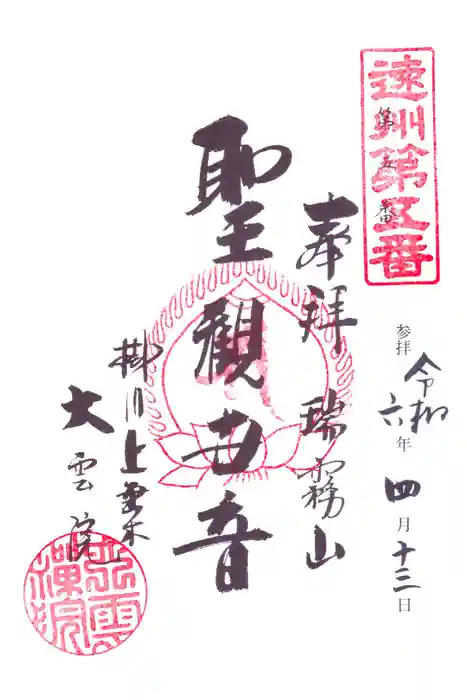 遠州第五番
第五番
参拝 令和六年 四月十三日
奉拝 瑞霧山
聖觀世音
掛川上垂木
大雲院